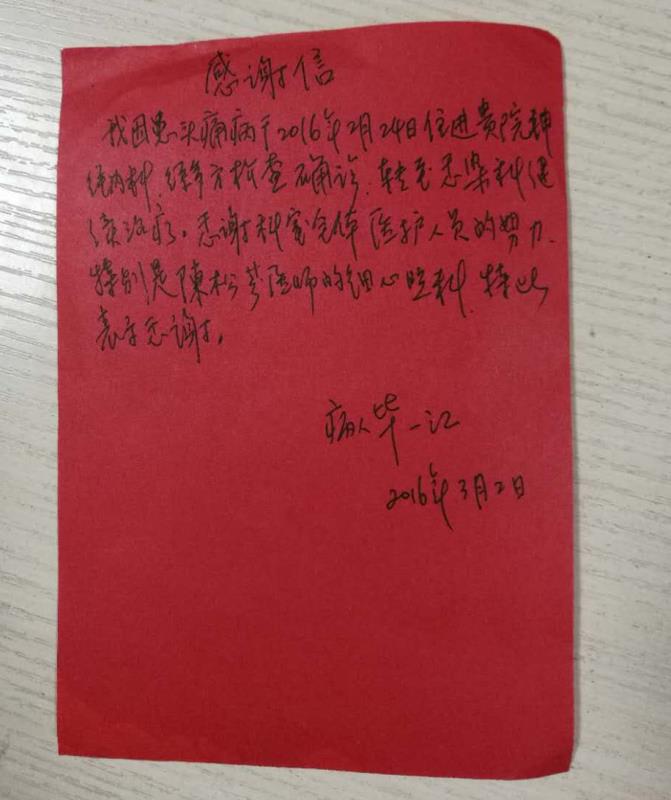 感谢信
我因患头痛病于2016年2月24日住进贵院神
经内科,经多方检查确诊,转至感染科继
续治疗。感谢科室全体医护人员的努力,
特别是陳松芳医师的细心照料,特此
表示感谢。
病人毕一江
2016年3月2日